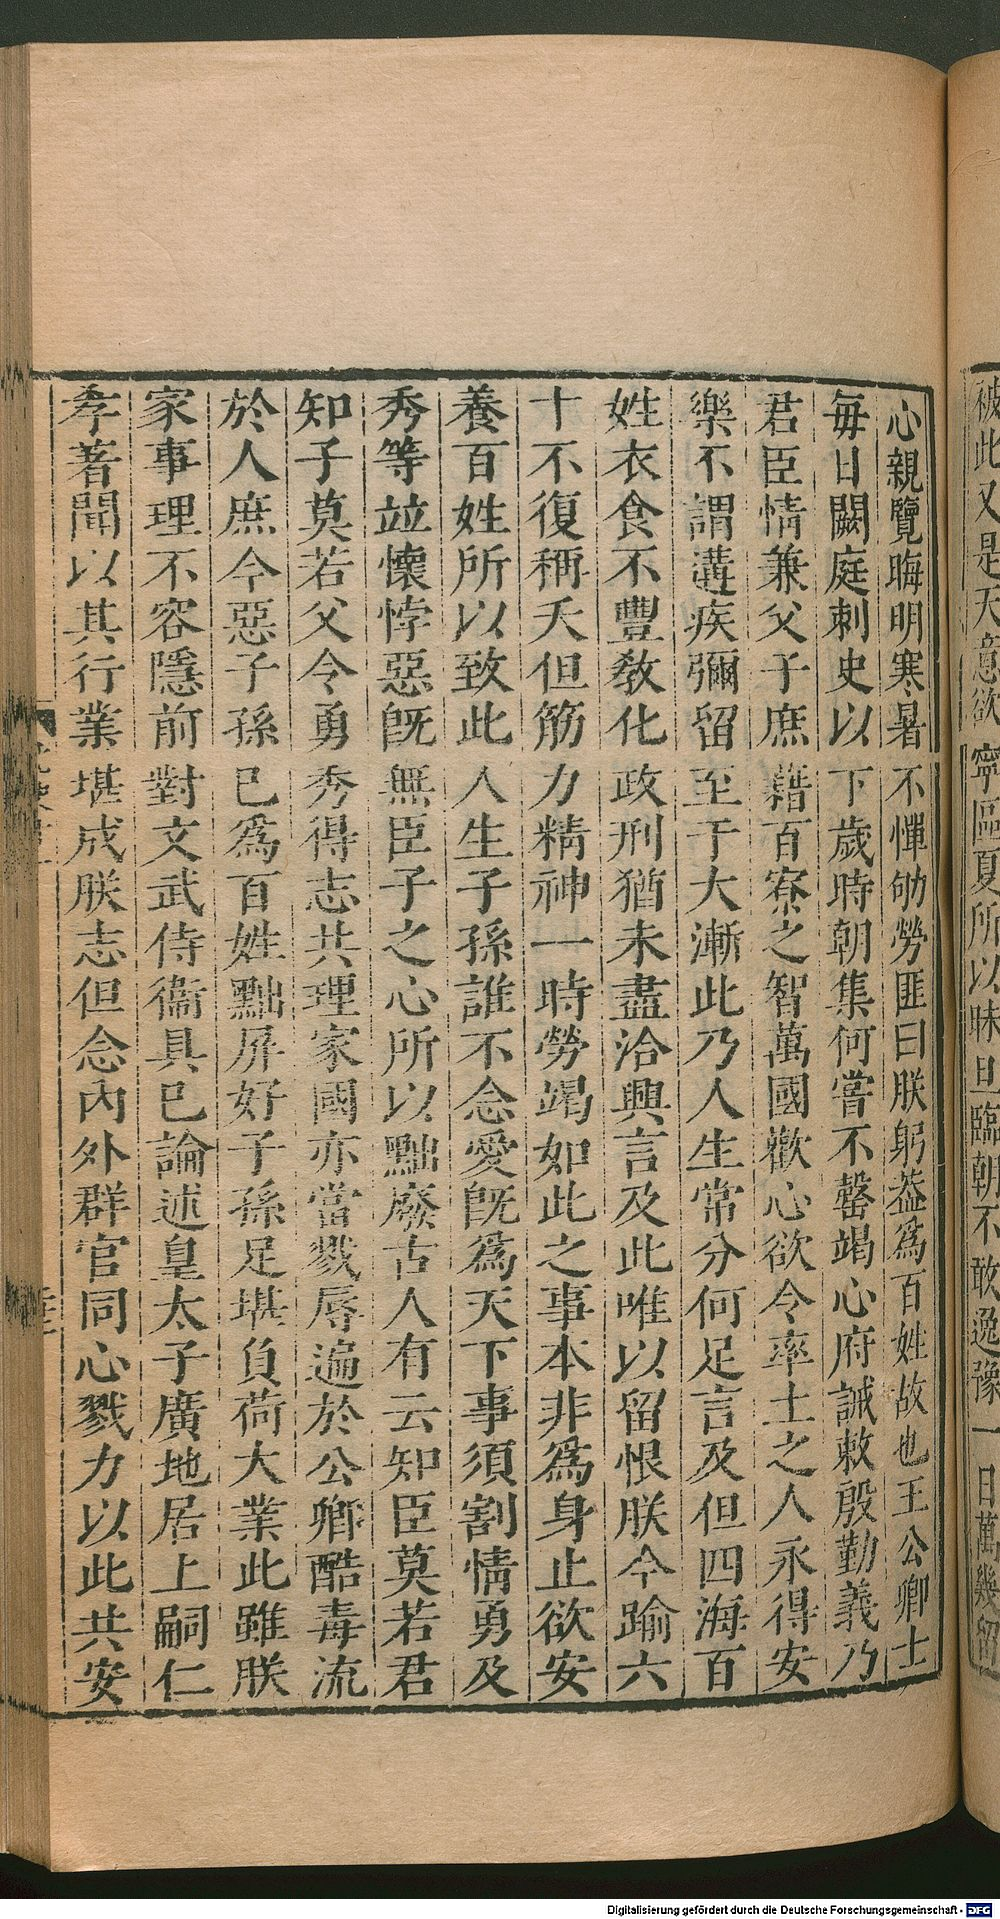 被此又是天意欲寧區夏所以昧旦臨朝不敢逸豫一日萬幾留
心親覽晦明寒暑不憚劬勞匪曰朕躬葢爲百姓故也王公卿士
每日闕庭刺史以下歲時朝集何嘗不罄竭心府誠敕殷勤義乃
君臣情兼父子庶藉百寮之智萬國歡心欲令率土之人永得安
樂不謂遘疾彌留至于大漸此乃人生常分何足言及但四海百
姓衣食不豐敎化政刑猶未盡洽興言及此唯以留恨朕今踰六
十不復稱夭但筋力精神一時勞竭如此之事本非爲身止欲安
養百姓所以致此人生子孫誰不念愛旣爲天下事須割情勇及
秀等竝懷悖惡旣無臣子之心所以黜廢古人有云知臣莫若君
知子莫若父令勇秀得志共理家國亦當戮辱遍於公卿酷毒流
於人庶今惡子孫已爲百姓黜屏好子孫足堪負荷大業此雖朕
家事理不容隱前對文武侍衞具已論述皇太子廣地居上嗣仁
孝著聞以其行業堪成朕志但念內外群官同心戮力以此共安
Digitalisierung gefördert durch die Deutsche Forschungsgemeinschaft - DFG